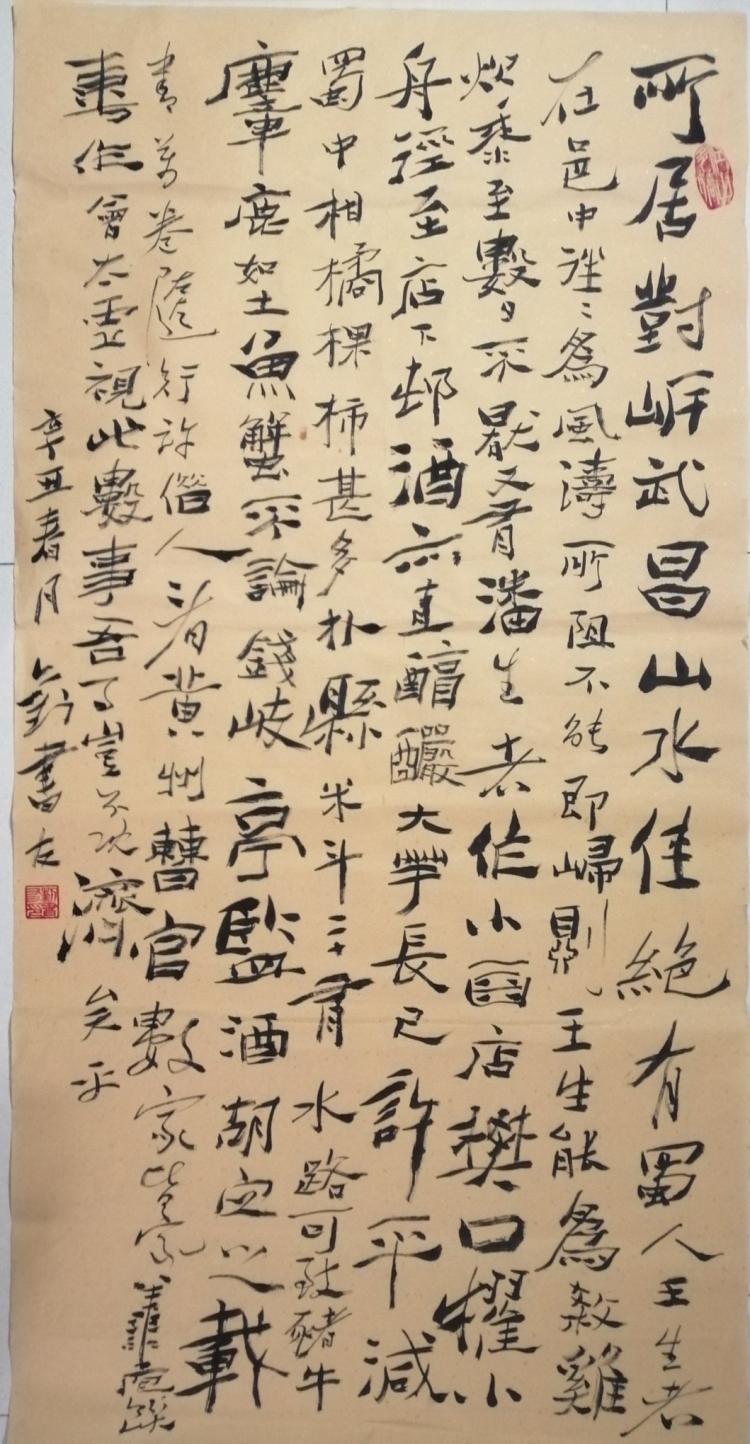 所居對岍武昌山水佳絕有蜀人王生者
在邑中往〻為風濤所阻不能即歸則王生能為殺雞
炊黍至數日不厭又有潘生者作小店樊口櫂小
舟徑至店下邨酒亦直醇釅大芋長尺許不減
蜀中柑橘椑柿甚多外縣米斗二十有水路可致豬牛
麞鹿如土魚蟹不論錢岐亭監酒胡定之載
書萬卷隨行許借人看黃州曹官數家皆家善庖饌
喜作會太虛視此數事吾事豈不既濟矣乎
辛丑春月